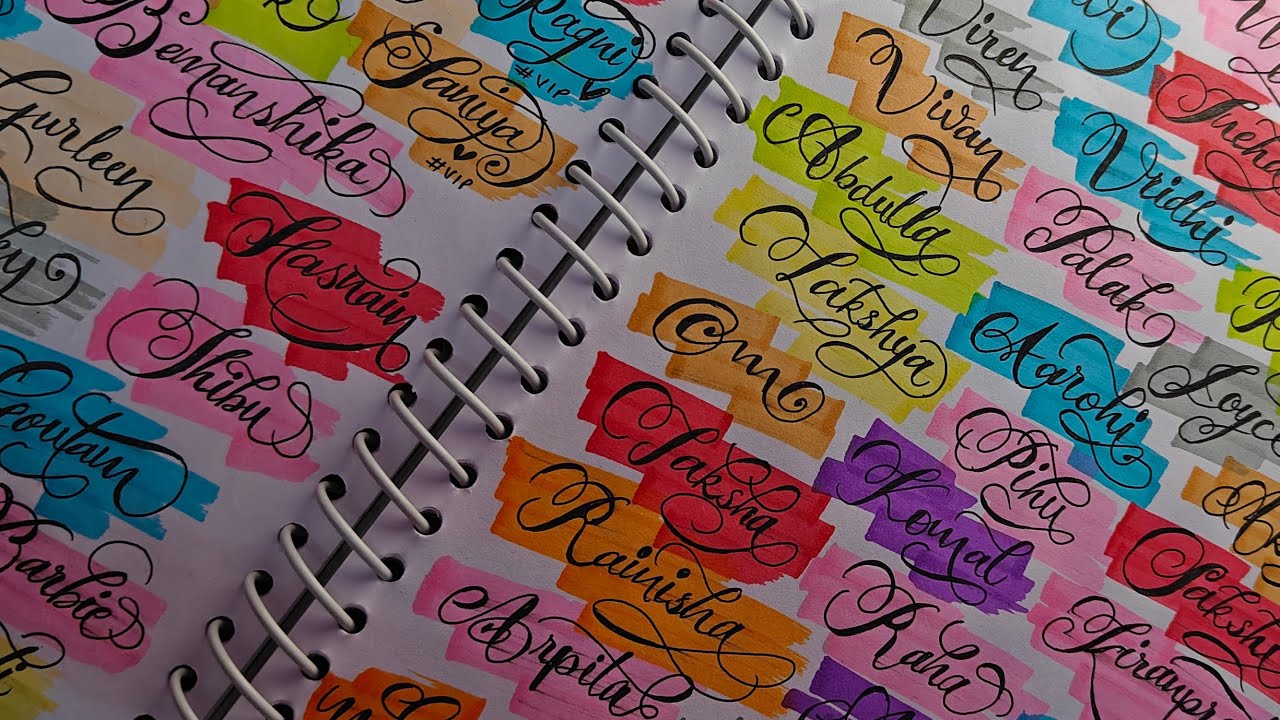 Ragni
#VIP
Bemanshika
Saniya
#VIP
Gurleen
Hasrain
Shibu
Goutam
Barbie
Viren
Vivan
Sneha
Abdulla
Vridhi
Lakshya
Palak
Om
Aarohi
Joyce
Saksha
Pihu
Komal
Sakshi
Rainisha
Raha
Arpita